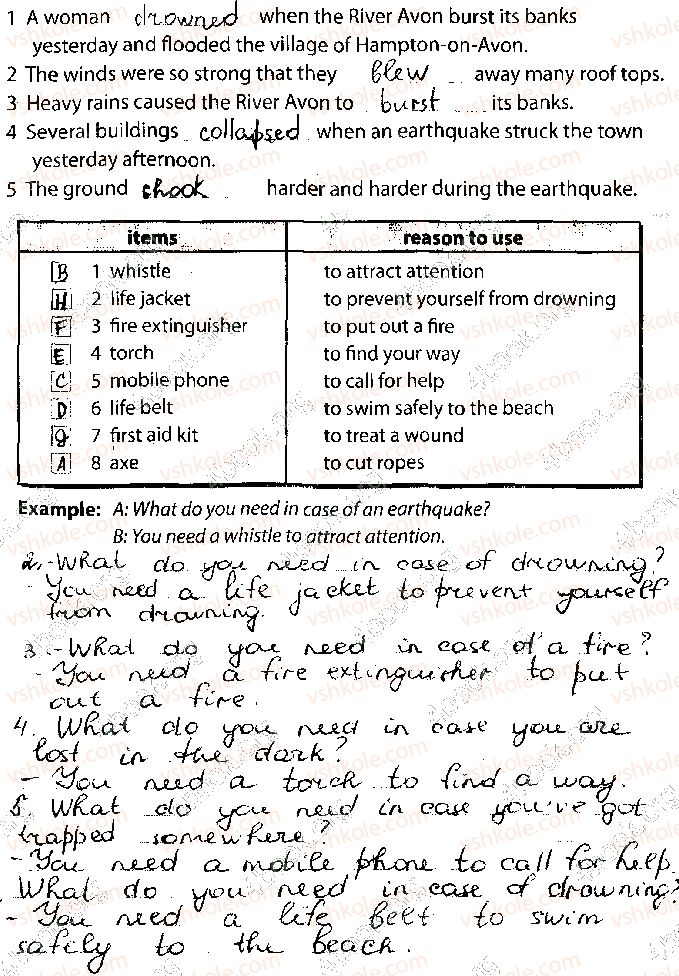 1 A woman drowned when the River Avon burst its banks
yesterday and flooded the village of Hampton-on-Avon.
2 The winds were so strong that they blew away many roof tops.
3 Heavy rains caused the River Avon to burst its banks.
4 Several buildings collapsed when an earthquake struck the town
yesterday afternoon.
5 The ground shook harder and harder during the earthquake.
items reason to use
B 1 whistle to attract attention
H 2 life jacket to prevent yourself from drowning
F 3 fire extinguisher to put out a fire
E 4 torch to find your way
C 5 mobile phone to call for help
D 6 life belt to swim safely to the beach
g 7 first aid kit to treat a wound
A 8 axe to cut ropes
Example: A: What do you need in case of an earthquake?
B: You need a whistle to attract attention.
2. - What do you need in case of drowning?
- You need a life jacket to prevent yourself
from drowning.
3. - What do you need in case of a fire?
- You need a fire extinguisher to put
out a fire.
4. What do you need in case you are
lost in the dark?
- You need a torch to find a way.
5. What do you need in case you've got
trapped somewhere?
- You need a mobile phone to call for help.
What do you need in case of drowning?
- You need a life belt to swim
safely to the beach.
vshkole.com